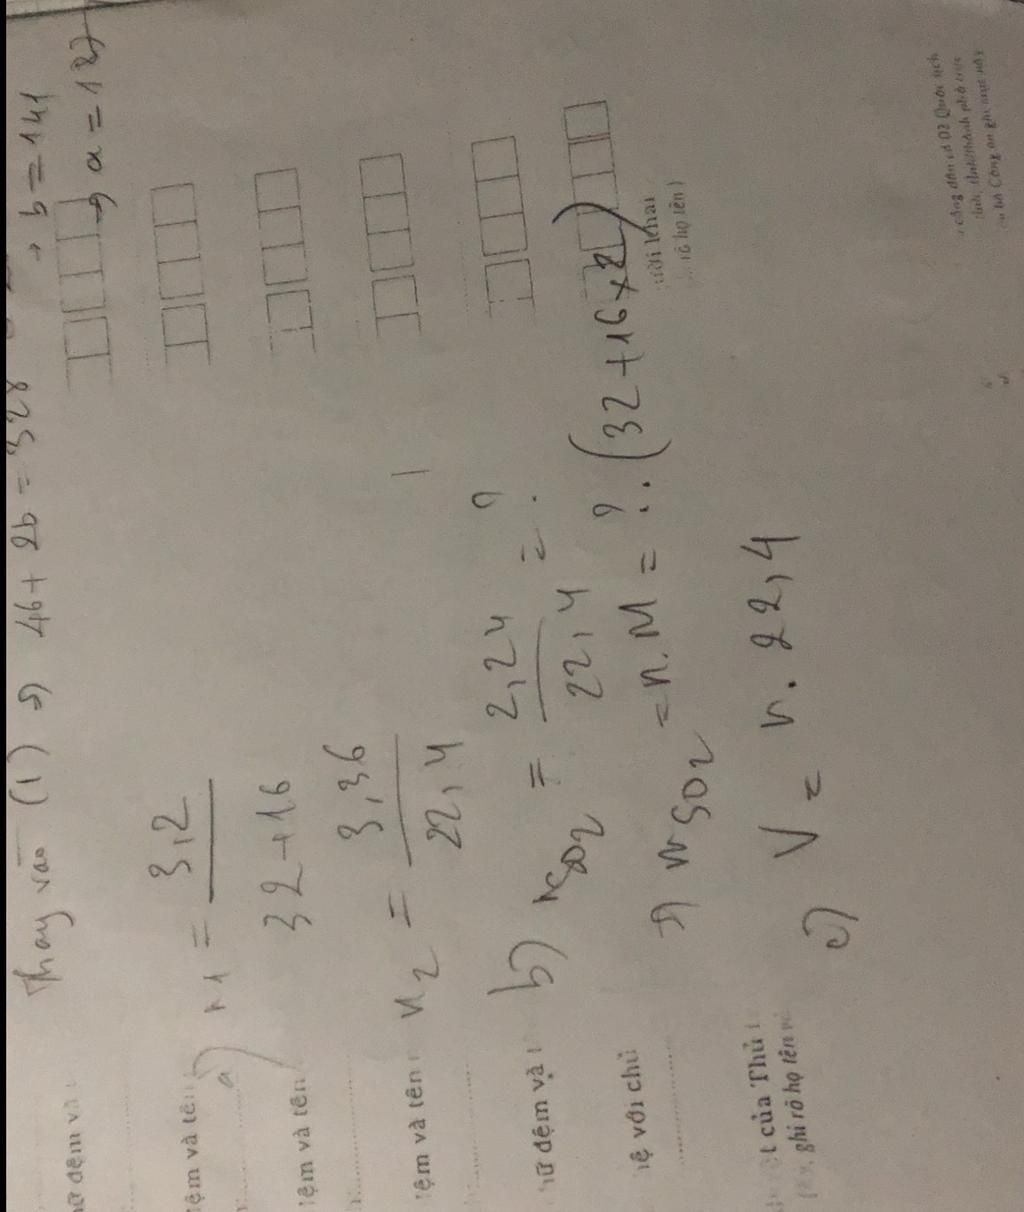 Thay vào (1) => 46+ 2b = 328 → b = 141
=> a = 187
a) n1 = 3,2
32+16
n2 = 3,36
22,4
b) nSO2 = 2,24 = ?
22,4
=> mSO2 = n.M = ?. (32+16x2)
c) V = n. 22,4
ữ đệm và
ệm và tên
ệm và tên
ệm và tên
ữ đệm và
hệ với chủ
t của Thủ
ghi rõ họ tên
ười khai
rõ họ tên)